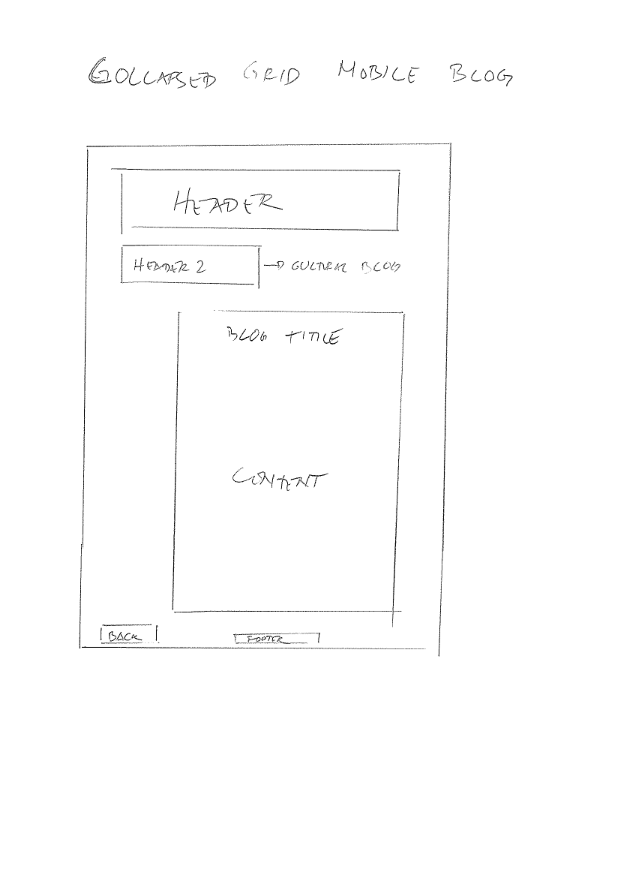 GOLLABSED GRID MOBILE BLOG
HEADER
HEADER 2 → CULTURAL BLOG
BLOG TITLE
CONTENT
BACK FOOTER